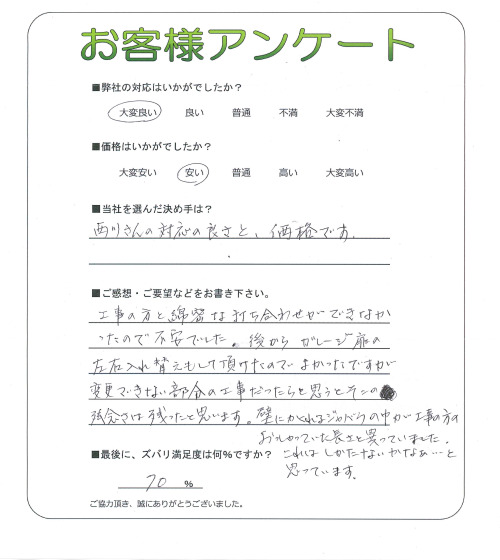 お客様アンケート
■弊社の対応はいかがでしたか？
大変良い 良い 普通 不満 大変不満
■価格はいかがでしたか？
大変安い 安い 普通 高い 大変高い
■当社を選んだ決め手は？
西川さんの対応の良さと、価格です。
■ご感想・ご要望などをお書き下さい。
工事の方と綿密な打ち合わせができなか
ったので不安でした。後からガレージ扉の
左右入れ替えもして頂けたのでよかったですが
変更できない部分の工事だったらと思うとそこの
残念さは残ったと思います。壁にかくれるジャバラの中が工事の方の
おしゃっていた長さと異っていました。
これはしかたないかなぁ…と
思っています。
■最後に、ズバリ満足度は何％ですか？
70 ％
ご協力頂き、誠にありがとうございました。